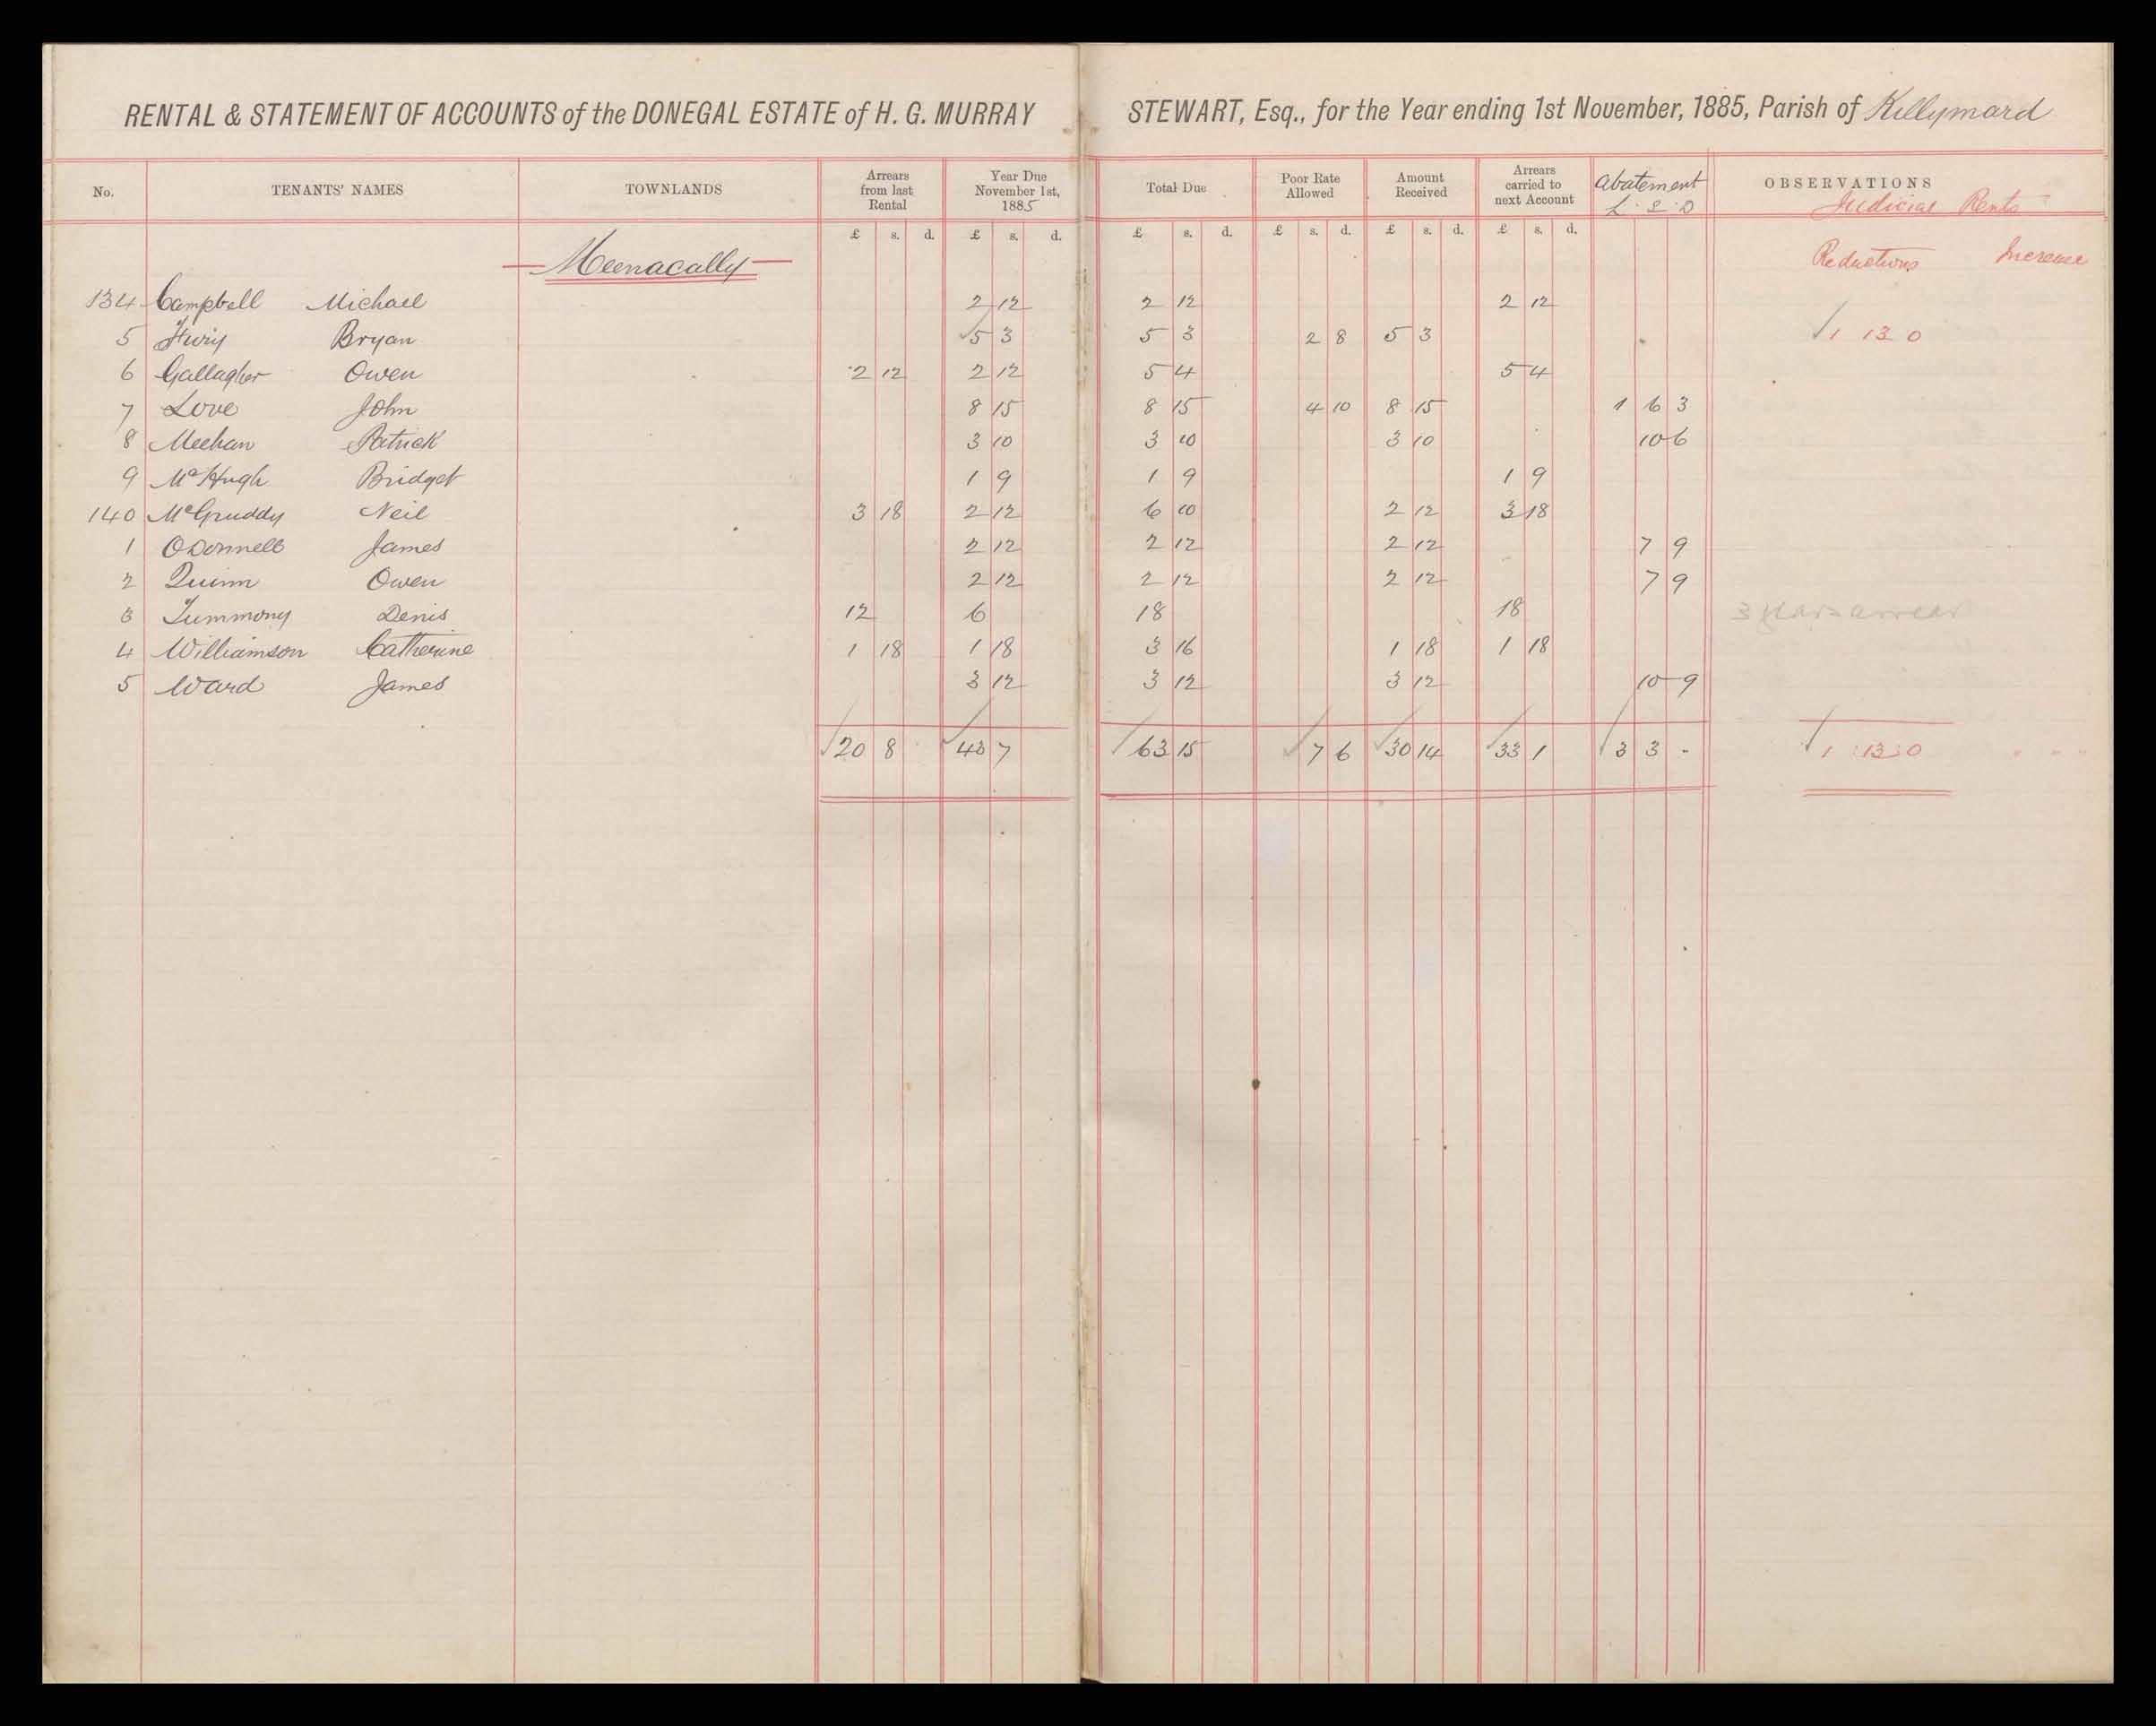 RENTAL & STATEMENT OF ACCOUNTS of the DONEGAL ESTATE of H. G. MURRAY STEWART, Esq., for the Year ending 1st November, 1885, Parish of Killymard
No. TENANTS' NAMES TOWNLANDS Arrears from last Rental Year Due November 1st, 1885 Total Due Poor Rate Allowed Amount Received Arrears carried to next Account Abatement L. S. D OBSERVATIONS Judicial Rents
£ s. d. £ s. d. £ s. d. £ s. d. £ s. d. £ s. d.
Meenacally Reductions Increase
134 Campbell Michael 2 12 2 12 2 12
5 Bryan 5 3 5 3 2 8 5 3 1 13 0
6 Gallagher Owen 2 12 2 12 5 4 5 4
7 Love John 8 15 8 15 4 10 8 15 1 6 3
8 Meehan Patrick 3 10 3 10 3 10 10 6
9 McHugh Bridget 1 9 1 9 1 9
140 McGruddy Neil 3 18 2 12 6 10 2 12 3 18
1 ODonnell James 2 12 2 12 2 12 7 9
2 Quinn Owen 2 12 2 12 2 12 7 9
3 Tummony Denis 12 6 18 18 3 years arrear
4 Williamson Catherine 1 18 1 18 3 16 1 18 1 18
5 Ward James 3 12 3 12 3 12 10 9
20 8 43 7 63 15 7 6 30 14 33 1 3 3 - 1 13 0 - - -